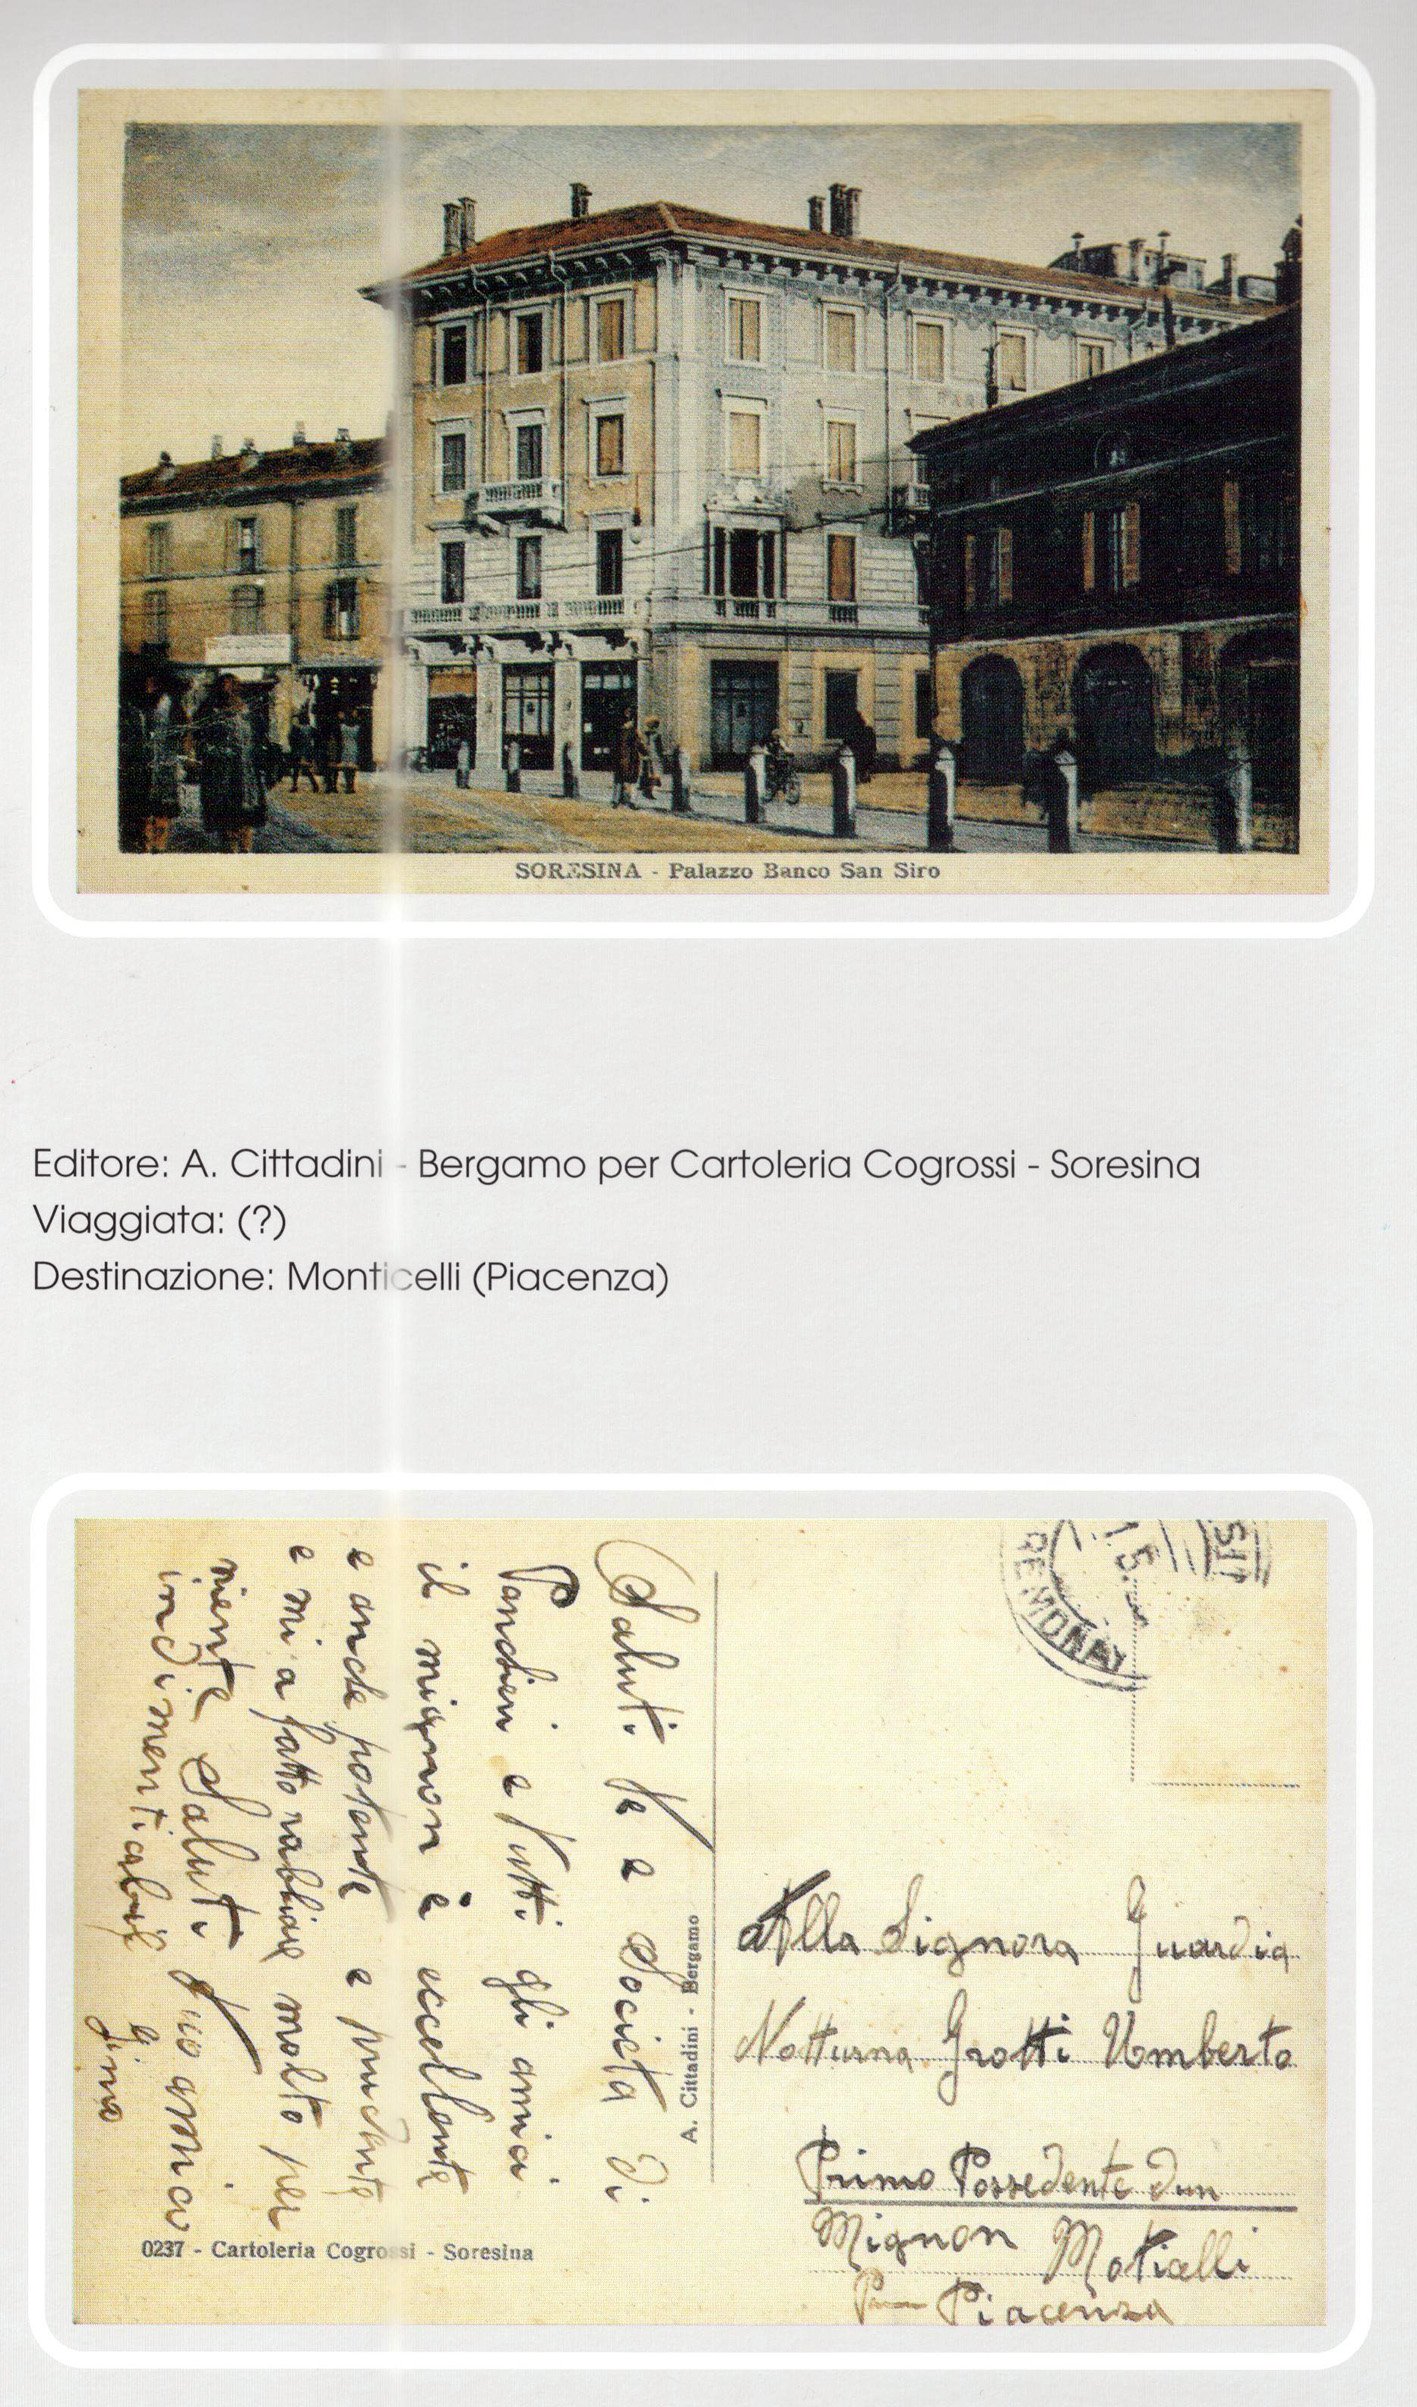 SORESINA - Palazzo Banco San Siro
Editore: A. Cittadini - Bergamo per Cartoleria Cogrossi - Soresina
Viaggiata: (?)
Destinazione: Monticelli (Piacenza)
Saluti Te a Società di
e tutti gli amici
il mignon è eccellente
e anche potente e prudente
e mi a fatto rabbiare molto per
niente Saluti tuo amico
indimenticabile
Gino
A. Cittadini - Bergamo
0237 - Cartoleria Cogrossi - Soresina
REMONA
Alla Signora Guardia
Notturna Grotti Umberto
Primo Possedente dun
Mignon Moticelli
Piacenza